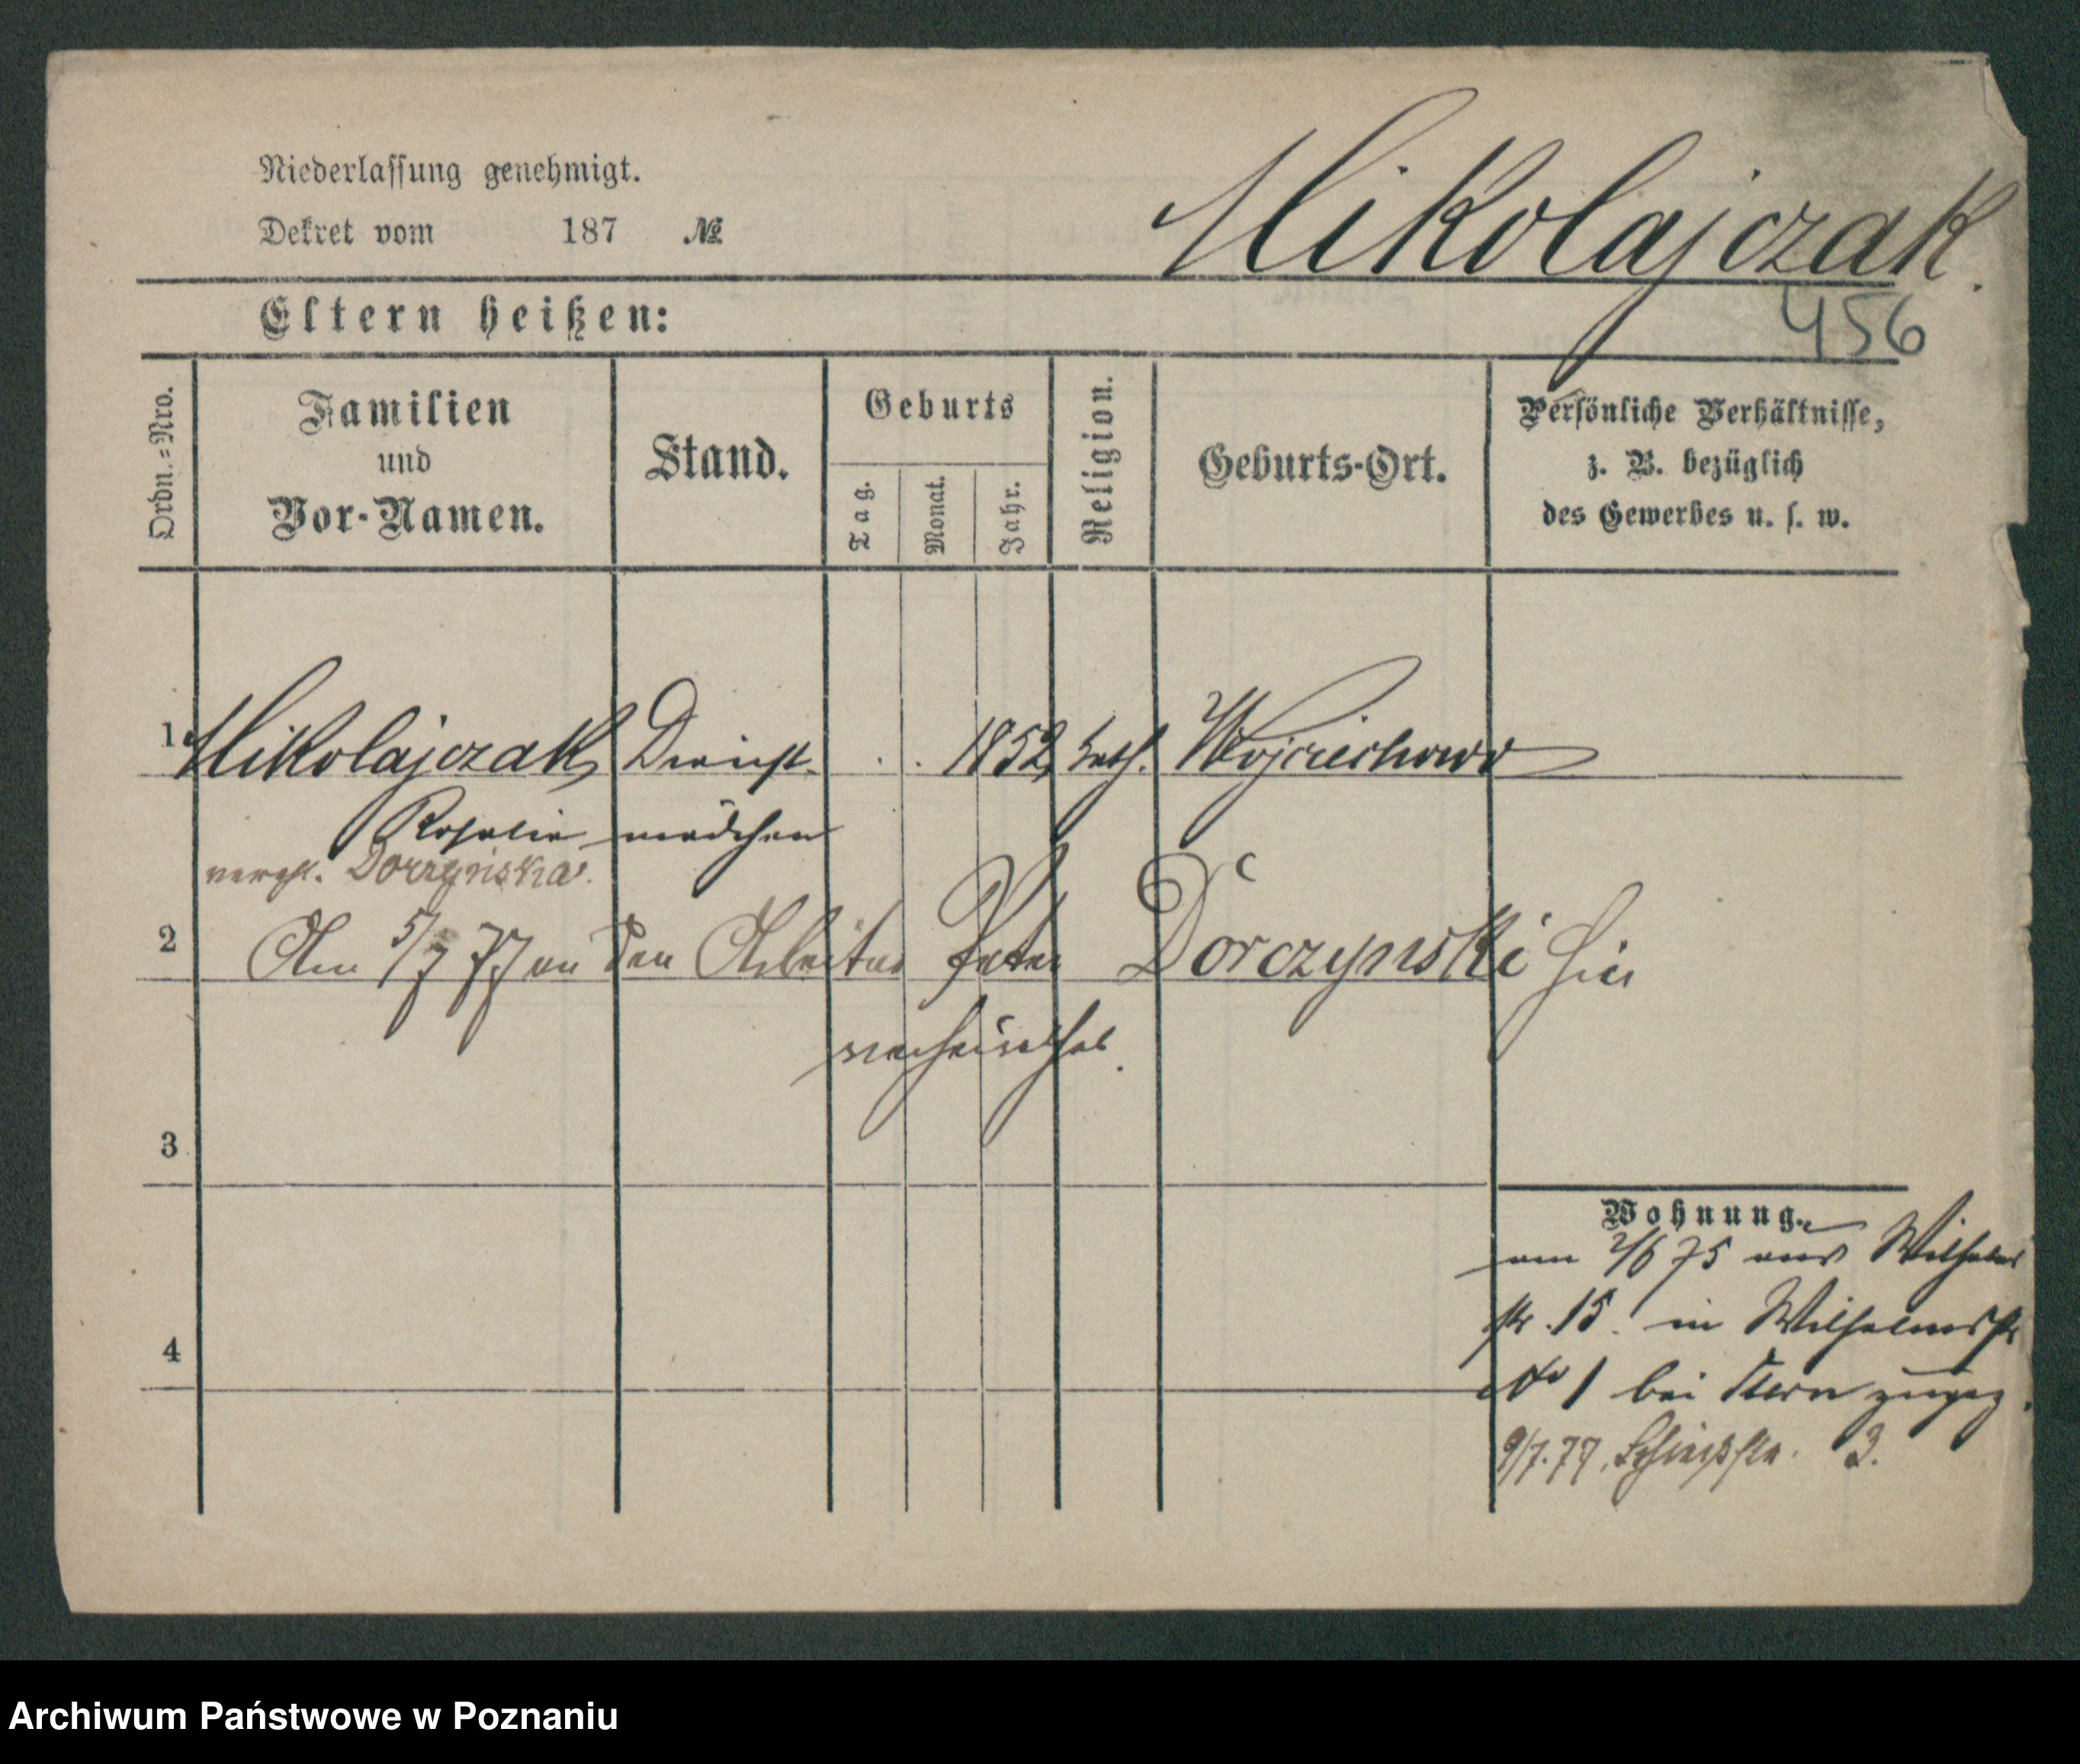 Niederlassung genehmigt.
Dekret vom 187 №
Mikolajczak.
456
Eltern heißen:
Ordn.=Nro.
Familien
und
Vor-Namen.
Stand.
Geburts
Tag.
Monat.
Jahr.
Religion.
Geburts-Ort.
Persönliche Verhältnisse,
z. B. bezüglich
des Gewerbes u. s. w.
1 Mikolajczak, Dienst- . . 1852, kath. Wojciechowo
Rosalie mädchen
verehl. Dorzynska.
2 Am 5/7 77 an den Arbeiter Peter Dorczynski hier
verheirathet.
3
Wohnung.
am 2/6 75 aus Wilhelms
str. 15. in Wilhelmsstr
No 1 bei Stern zugez.
4
9/7.77, Schiesstr. 3.
Archiwum Państwowe w Poznaniu